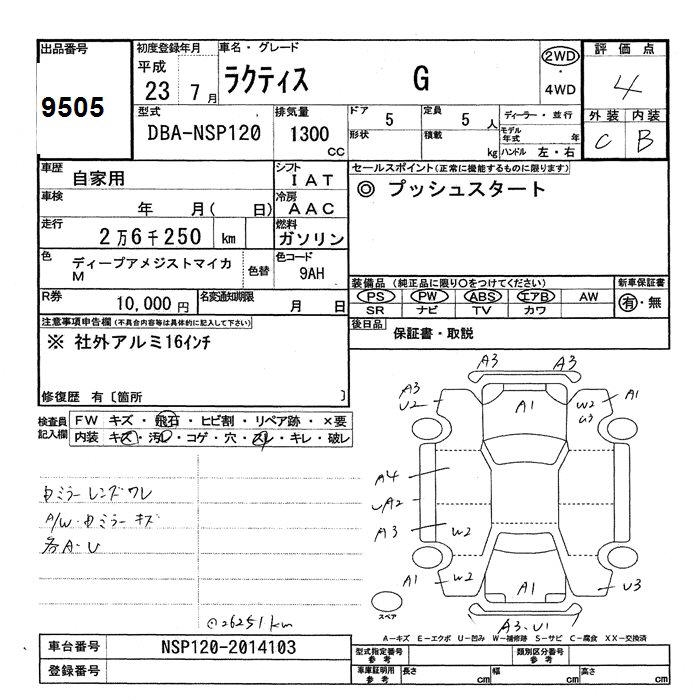 出品番号
9505
初度登録年月
平成
23 7月
車名・グレード
ラクティス G
2WD
・
4WD
評価点
4
外装 内装
C B
型式
DBA-NSP120
排気量
1300
CC
ドア 5
定員 5 人
形状
積載 kg
ディーラー・並行
モデル年式 年
ハンドル 左・右
車歴
自家用
シフト
IAT
車検
年 月( 日)
冷房
AAC
走行
2万6千250 km
燃料
ガソリン
色
ディープアメジストマイカM
色替
色コード
9AH
R券
10,000円
名変通知期限
月 日
セールスポイント(正常に機能するものに限ります)
◎ プッシュスタート
装備品(純正品に限り○をつけてください)
PS PW ABS エアB AW
SR ナビ TV カワ
新車保証書
有・無
後日品
保証書・取説
注意事項申告欄(不具合内容等は具体的に記入して下さい)
※ 社外アルミ16インチ
修復歴 有〔箇所 〕
検査員記入欄
FW キズ・飛石・ヒビ割・リペア跡・×要
内装 キズ・汚レ・コゲ・穴・スレ・キレ・破レ
中ミラーレンズワレ
A/W・中ミラーキズ
各A・U
@26251km
A3
A3
A3
U2
A1
W2
U3
A1
A4
UA2
A3
W2
A1
W2
A1
U3
A3・U1
スペア
A-キズ E-エクボ U-凹み W-補修跡 S-サビ C-腐食 XX-交換済
車台番号
NSP120-2014103
登録番号
型式指定番号
参考
類別区分番号
参考
車庫証明用
参考
長さ cm
幅 cm
高さ cm